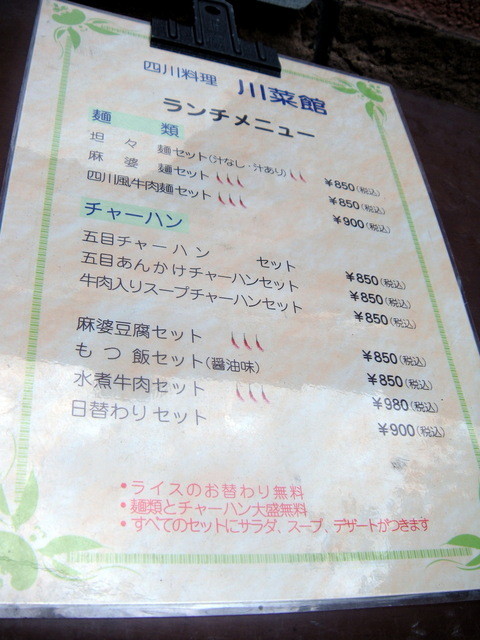 四川料理 川菜館
ランチメニュー
麺類
坦々麺セット(汁なし・汁あり) ¥850(税込)
麻婆麺セット ¥850(税込)
四川風牛肉麺セット ¥900(税込)
チャーハン
五目チャーハン セット ¥850(税込)
五目あんかけチャーハンセット ¥850(税込)
牛肉入りスープチャーハンセット ¥850(税込)
麻婆豆腐セット ¥850(税込)
もつ飯セット(醤油味) ¥850(税込)
水煮牛肉セット ¥980(税込)
日替わりセット ¥900(税込)
•ライスのお替わり無料
•麺類とチャーハン大盛無料
•すべてのセットにサラダ、スープ、デザートがつきます